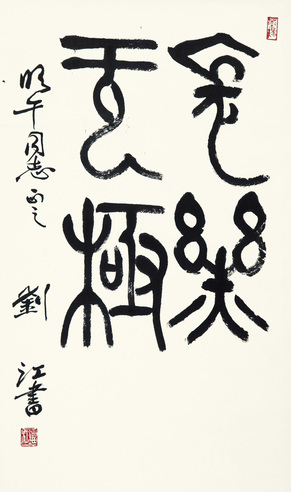 長樂
无極
明午同志正之
劉江書